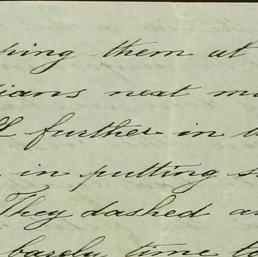 hing them at
dians next m
ll further in t
in putting s
They dashed a
barely time to